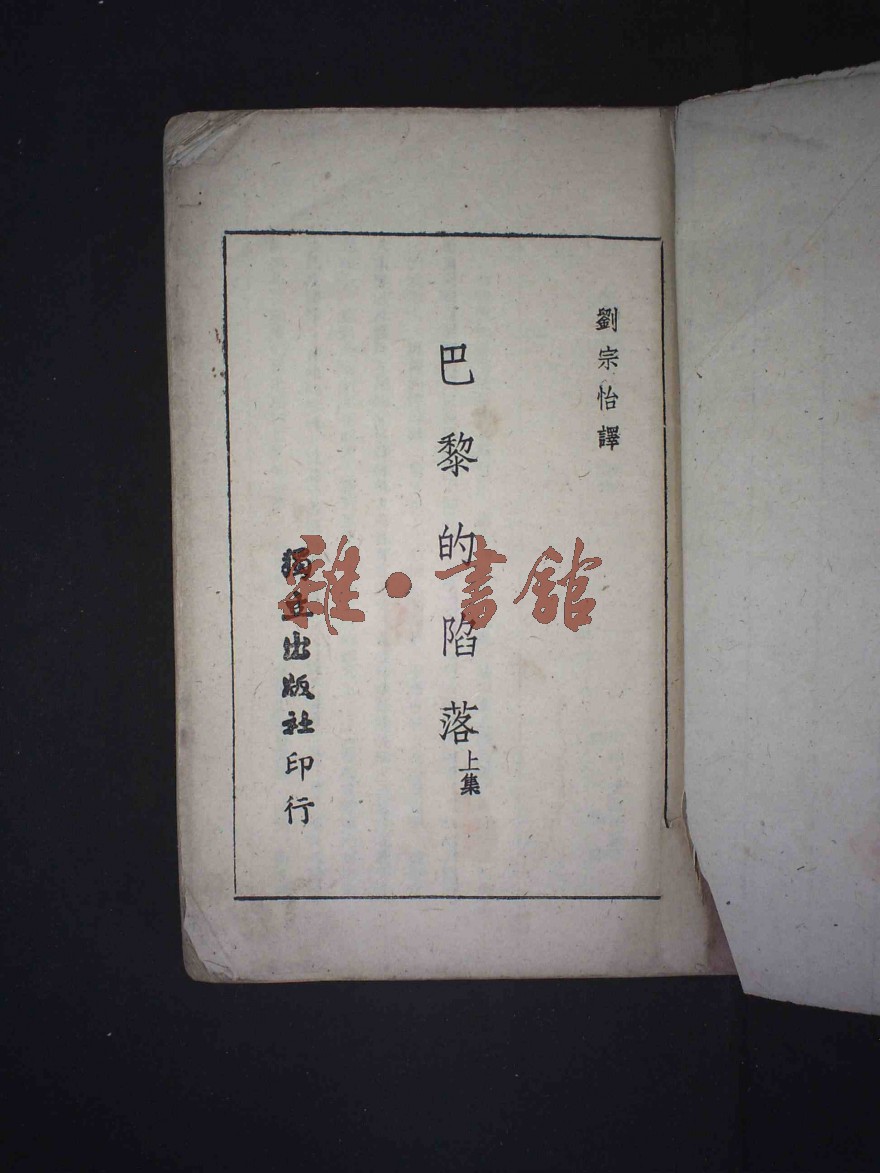 劉宗怡譯
巴黎的陷落上集
獨立出版社印行
雜·書館